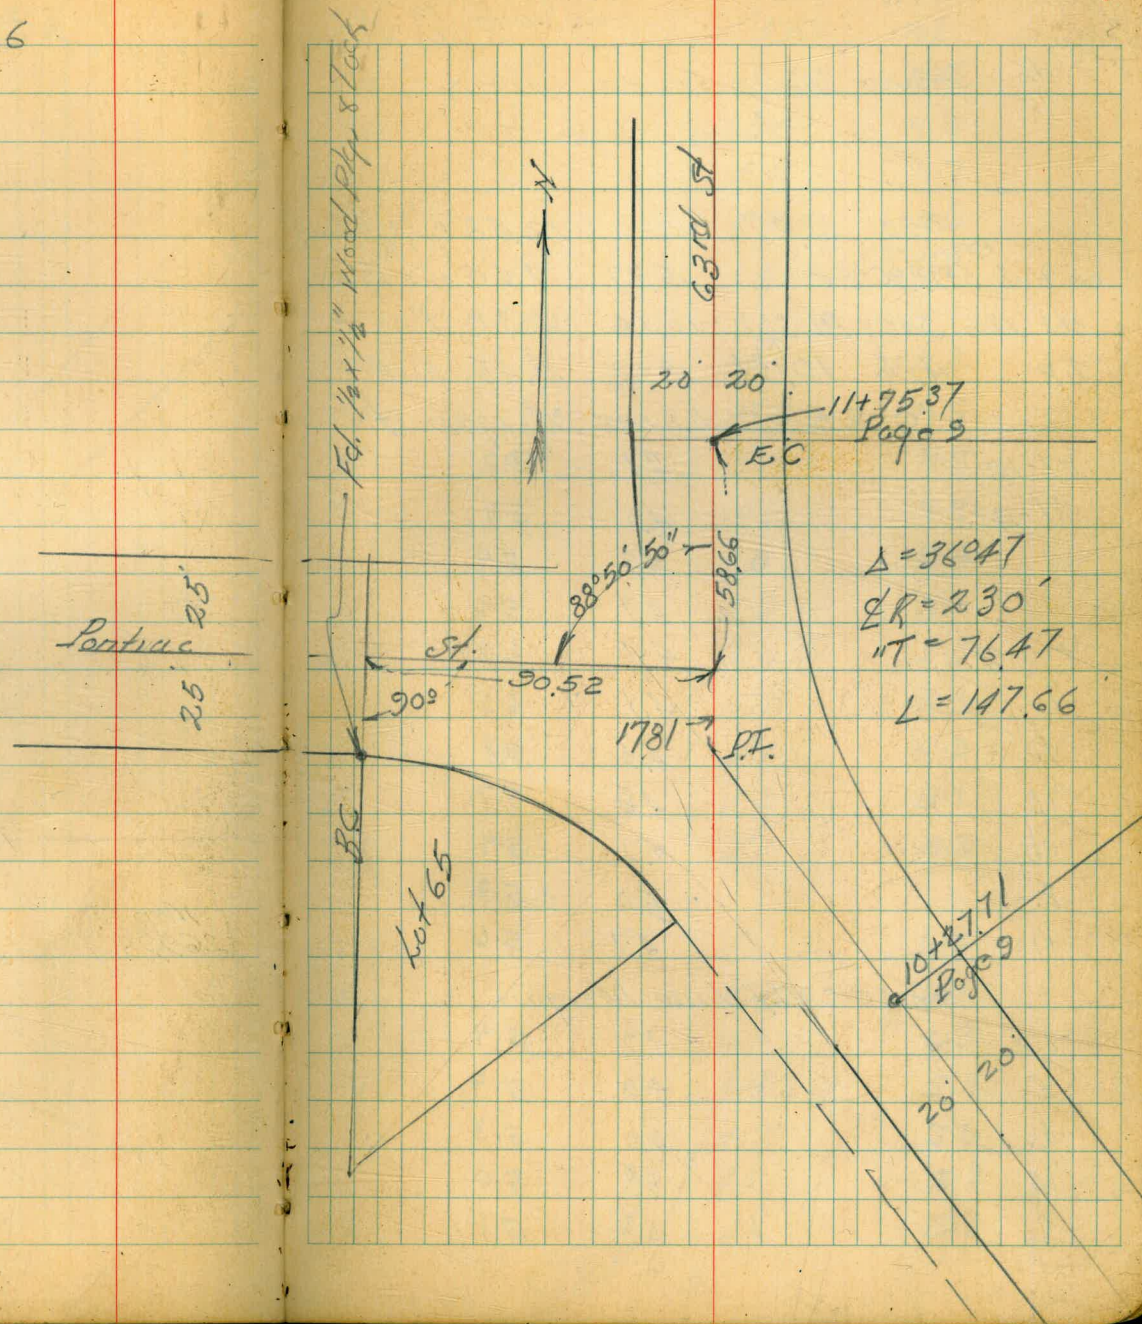 6
Fd. 1/2 x 1/2" Wood Plg & Tack
N
63rd St
20' 20'
11+75.37
Page 9
E C
88° 50' 50"
58.66
Δ = 36°47
℄R = 230'
"T = 76.47
L = 147.66
25'
Pontiac St.
25'
90.52
90°
17.81
P.I.
BC
Lot 65
10+27.71
Page 9
20' 20'